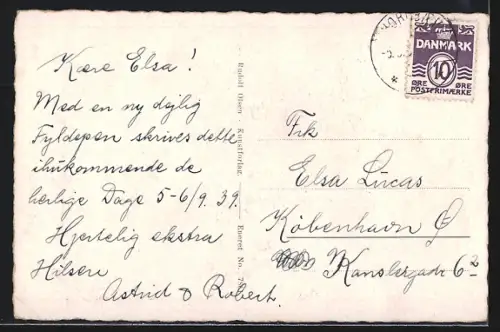 Kære Elsa!
Med en ny dejlig
Fyldepen skrives dette
ihukommende de
herlige Dage 5-6/9. 39.
Hjertelig ekstra
Hilsen
Astrid & Robert.
Rudolf Olsens Kunstforlag. Eneret No.
DANMARK
10
ØRE ØRE
POSTFRIMÆRKE
Frk
Elsa Lucas
København Ø
Kanslergade 6²